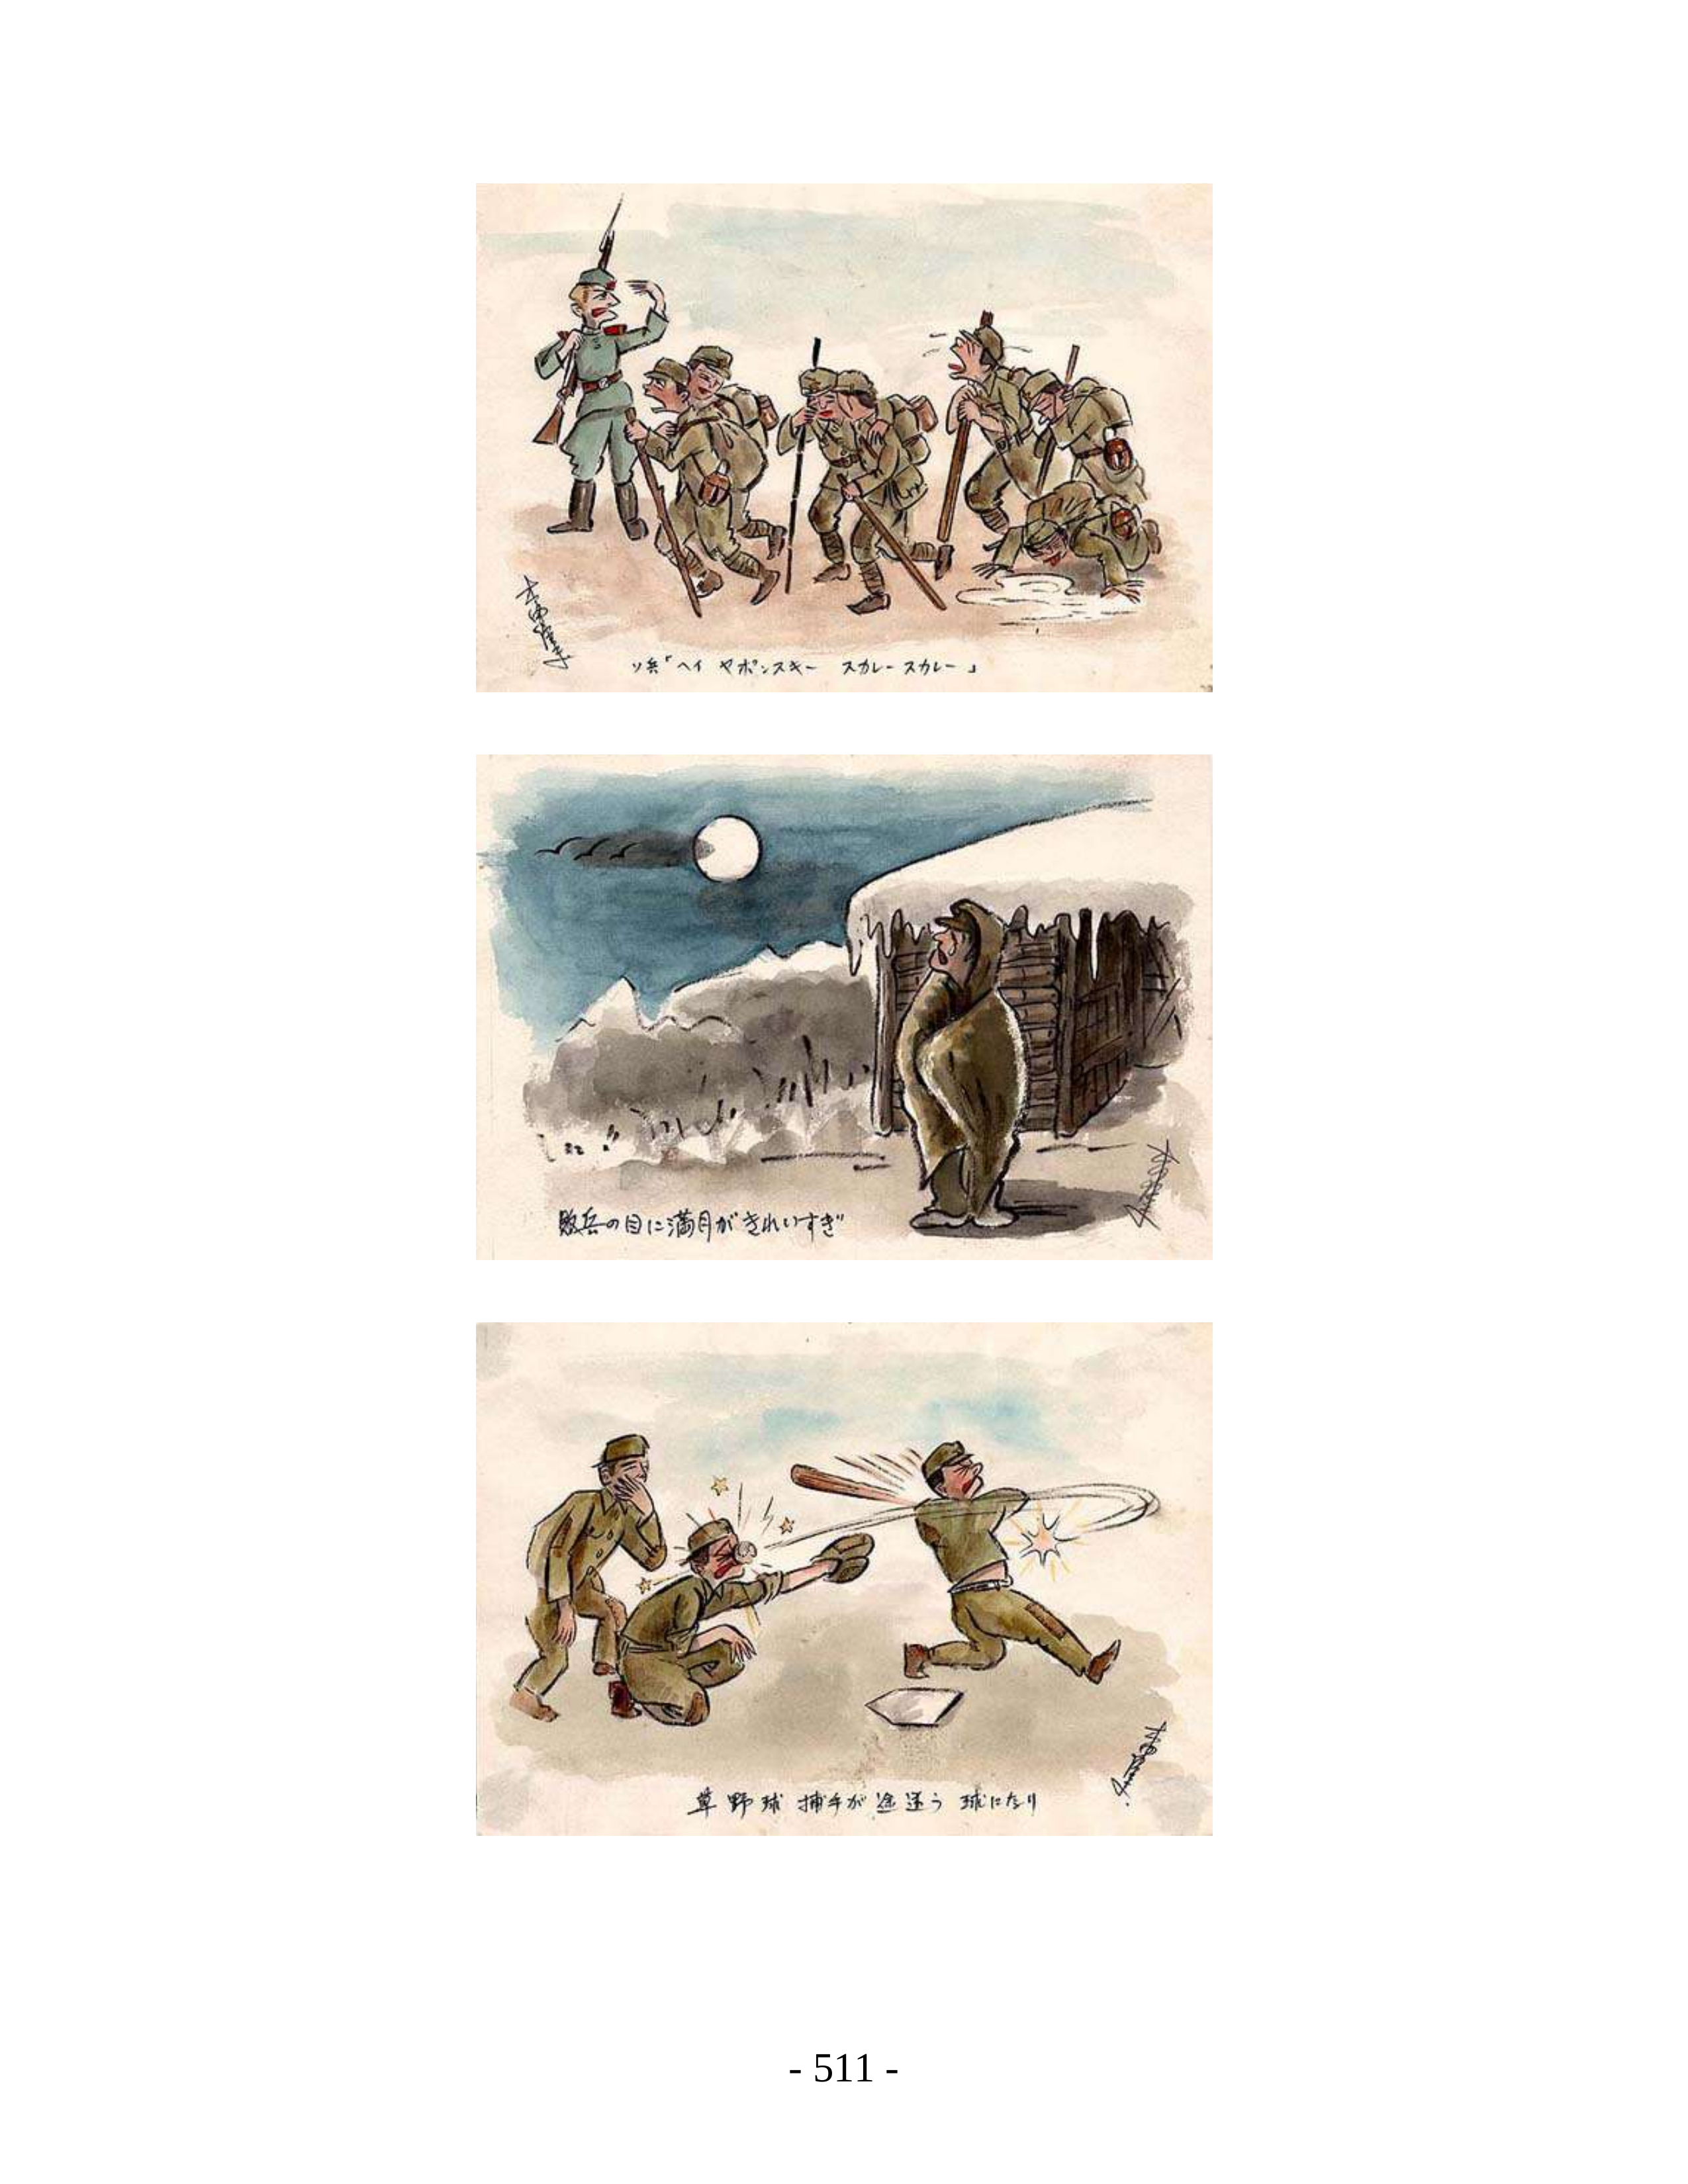 ソ兵「ヘイ ヤポンスキー スカレースカレー」
敗兵の目に満月がきれいすぎ
草野球 捕手が途迷う 球になり
- 511 -